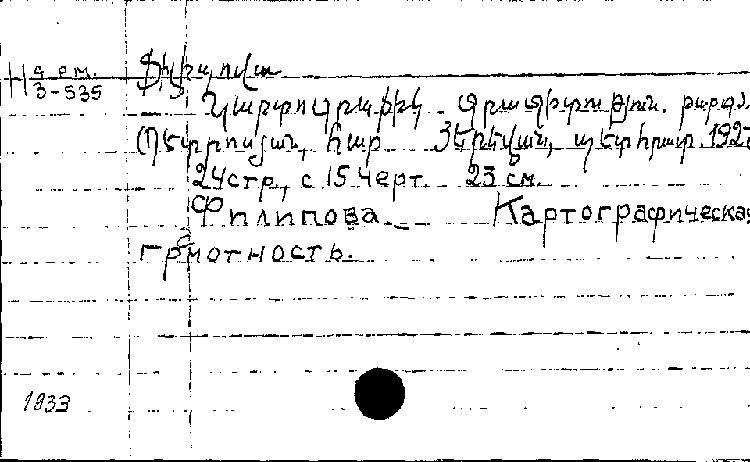 Н арм.
3-535
Ֆիլիպովա
Կարտոգրաֆիկ գրագիտություն. թարգմ.
Պետրոսյան, հար Յերևան, պետհրատ. 192
24 стр., с 15 черт. 23 см.
Филипова Картографическая
грамотность.
1933